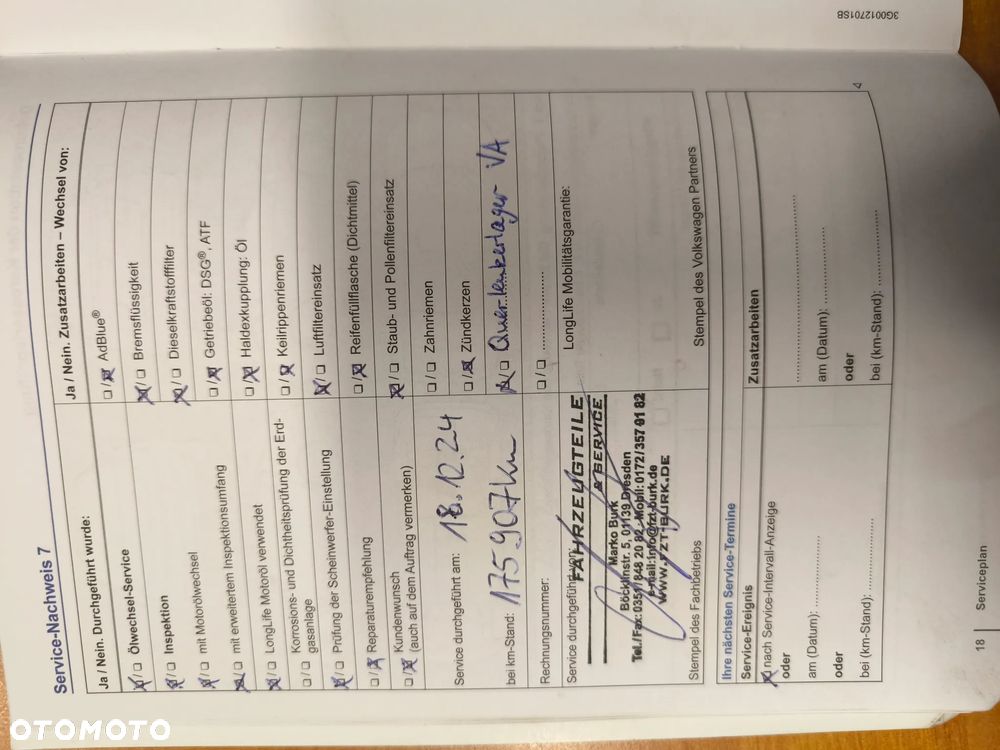 3G0012701SB
Service-Nachweis 7
Ja / Nein. Durchgeführt wurde:
Ölwechsel-Service
Inspektion
mit Motorölwechsel
mit erweitertem Inspektionsumfang
LongLife Motoröl verwendet
Korrosions- und Dichtheitsprüfung der Erd-
gasanlage
Prüfung der Scheinwerfer-Einstellung
Reparaturempfehlung
Kundenwunsch
(auch auf dem Auftrag vermerken)
Service durchgeführt am: 18.12.24
bei km-Stand: 175.907 km
Rechnungsnummer:
Service durchgeführt von:
FAHRZEUGTEILE
& SERVICE
Marko Burk
Böcklinstr. 5, 01139 Dresden
Tel./Fax: 0351/848 20 82 · Mobil: 0172/357 01 82
e-mail: info@fzt-burk.de
WWW.FZT-BURK.DE
Stempel des Fachbetriebs
Ja / Nein. Zusatzarbeiten – Wechsel von:
AdBlue®
Bremsflüssigkeit
Dieselkraftstofffilter
Getriebeöl: DSG®, ATF
Haldexkupplung: Öl
Keilrippenriemen
Luftfiltereinsatz
Reifenfüllflasche (Dichtmittel)
Staub- und Pollenfiltereinsatz
Zahnriemen
Zündkerzen
Querlenkerlager VA
LongLife Mobilitätsgarantie:
Stempel des Volkswagen Partners
Ihre nächsten Service-Termine
Service-Ereignis
nach Service-Intervall-Anzeige
oder
am (Datum):
oder
bei (km-Stand):
Zusatzarbeiten
am (Datum):
oder
bei (km-Stand):
18 | Serviceplan
OTOMOTO